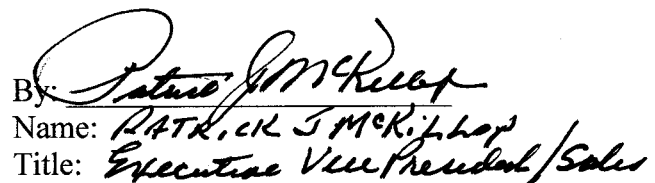 By: Patrick J McKillop
Name: PATRICK J MCKILLOP
Title: Executive Vice President/Sales